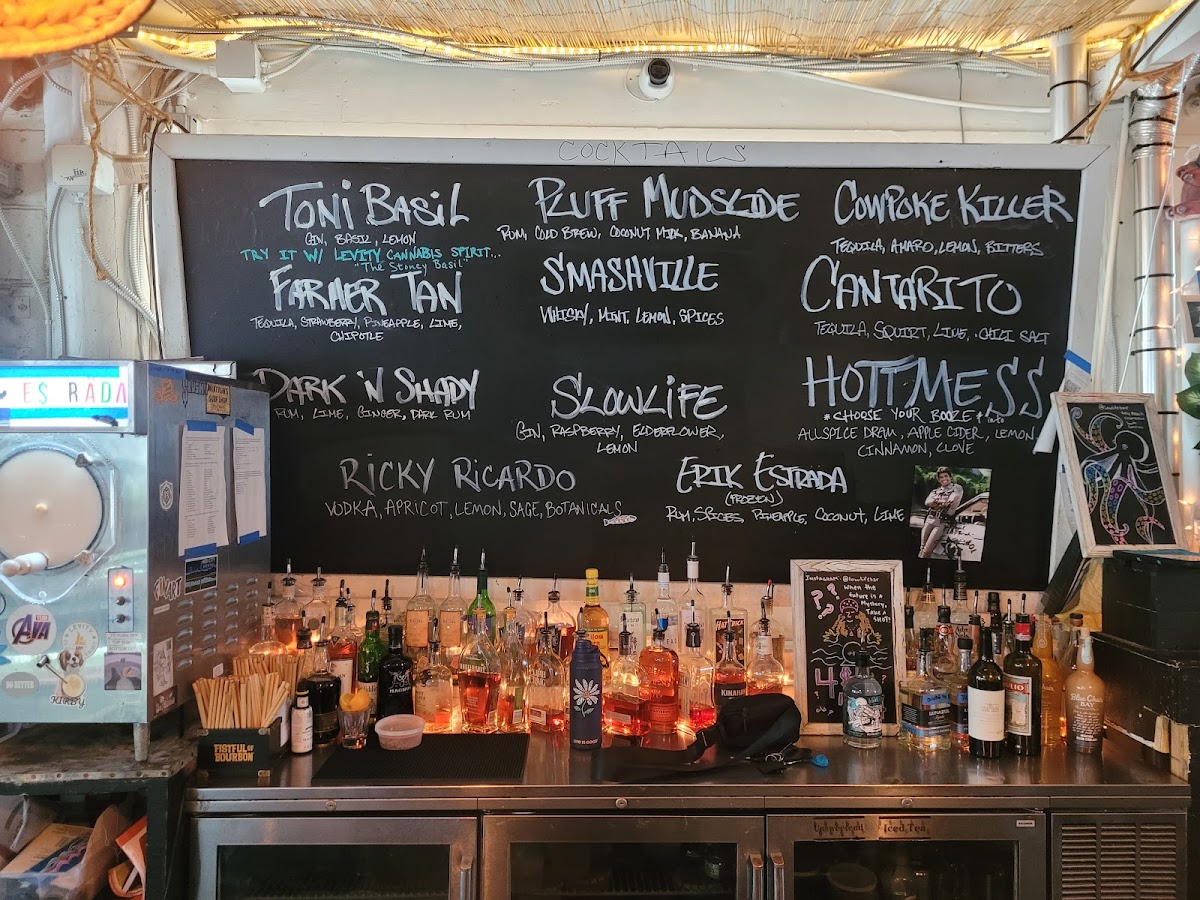 COCKTAILS
TONI BASIL
GIN, BASIL, LEMON
TRY IT W/ LEVITY CANNABIS SPIRIT...
"The Stoney Basil"
PLUFF MUDSLIDE
RUM, COLD BREW, COCONUT MILK, BANANA
COWPOKE KILLER
TEQUILA, AMARO, LEMON, BITTERS
FARMER TAN
TEQUILA, STRAWBERRY, PINEAPPLE, LIME,
CHIPOTLE
SMASHVILLE
WHISKY, MINT, LEMON, SPICES
CANTARITO
TEQUILA, SQUIRT, LIME, CHILI SALT
DARK 'N SHADY
RUM, LIME, GINGER, DARK RUM
SLOWLIFE
GIN, RASPBERRY, ELDERFLOWER,
LEMON
HOTT MESS
*CHOOSE YOUR BOOZE + into
ALLSPICE DRAM, APPLE CIDER, LEMON
CINNAMON, CLOVE
RICKY RICARDO
VODKA, APRICOT, LEMON, SAGE, BOTANICALS
ERIK ESTRADA
(FROZEN)
RUM, SPICES, PINEAPPLE, COCONUT, LIME
ES RADA
AVA
KIRBY
FISTFUL OF
BOURBON
Instagram: @lowlifebar
When the
future is a
Mystery,
Take a
SHOT!
KINAHAN
Iced Tea